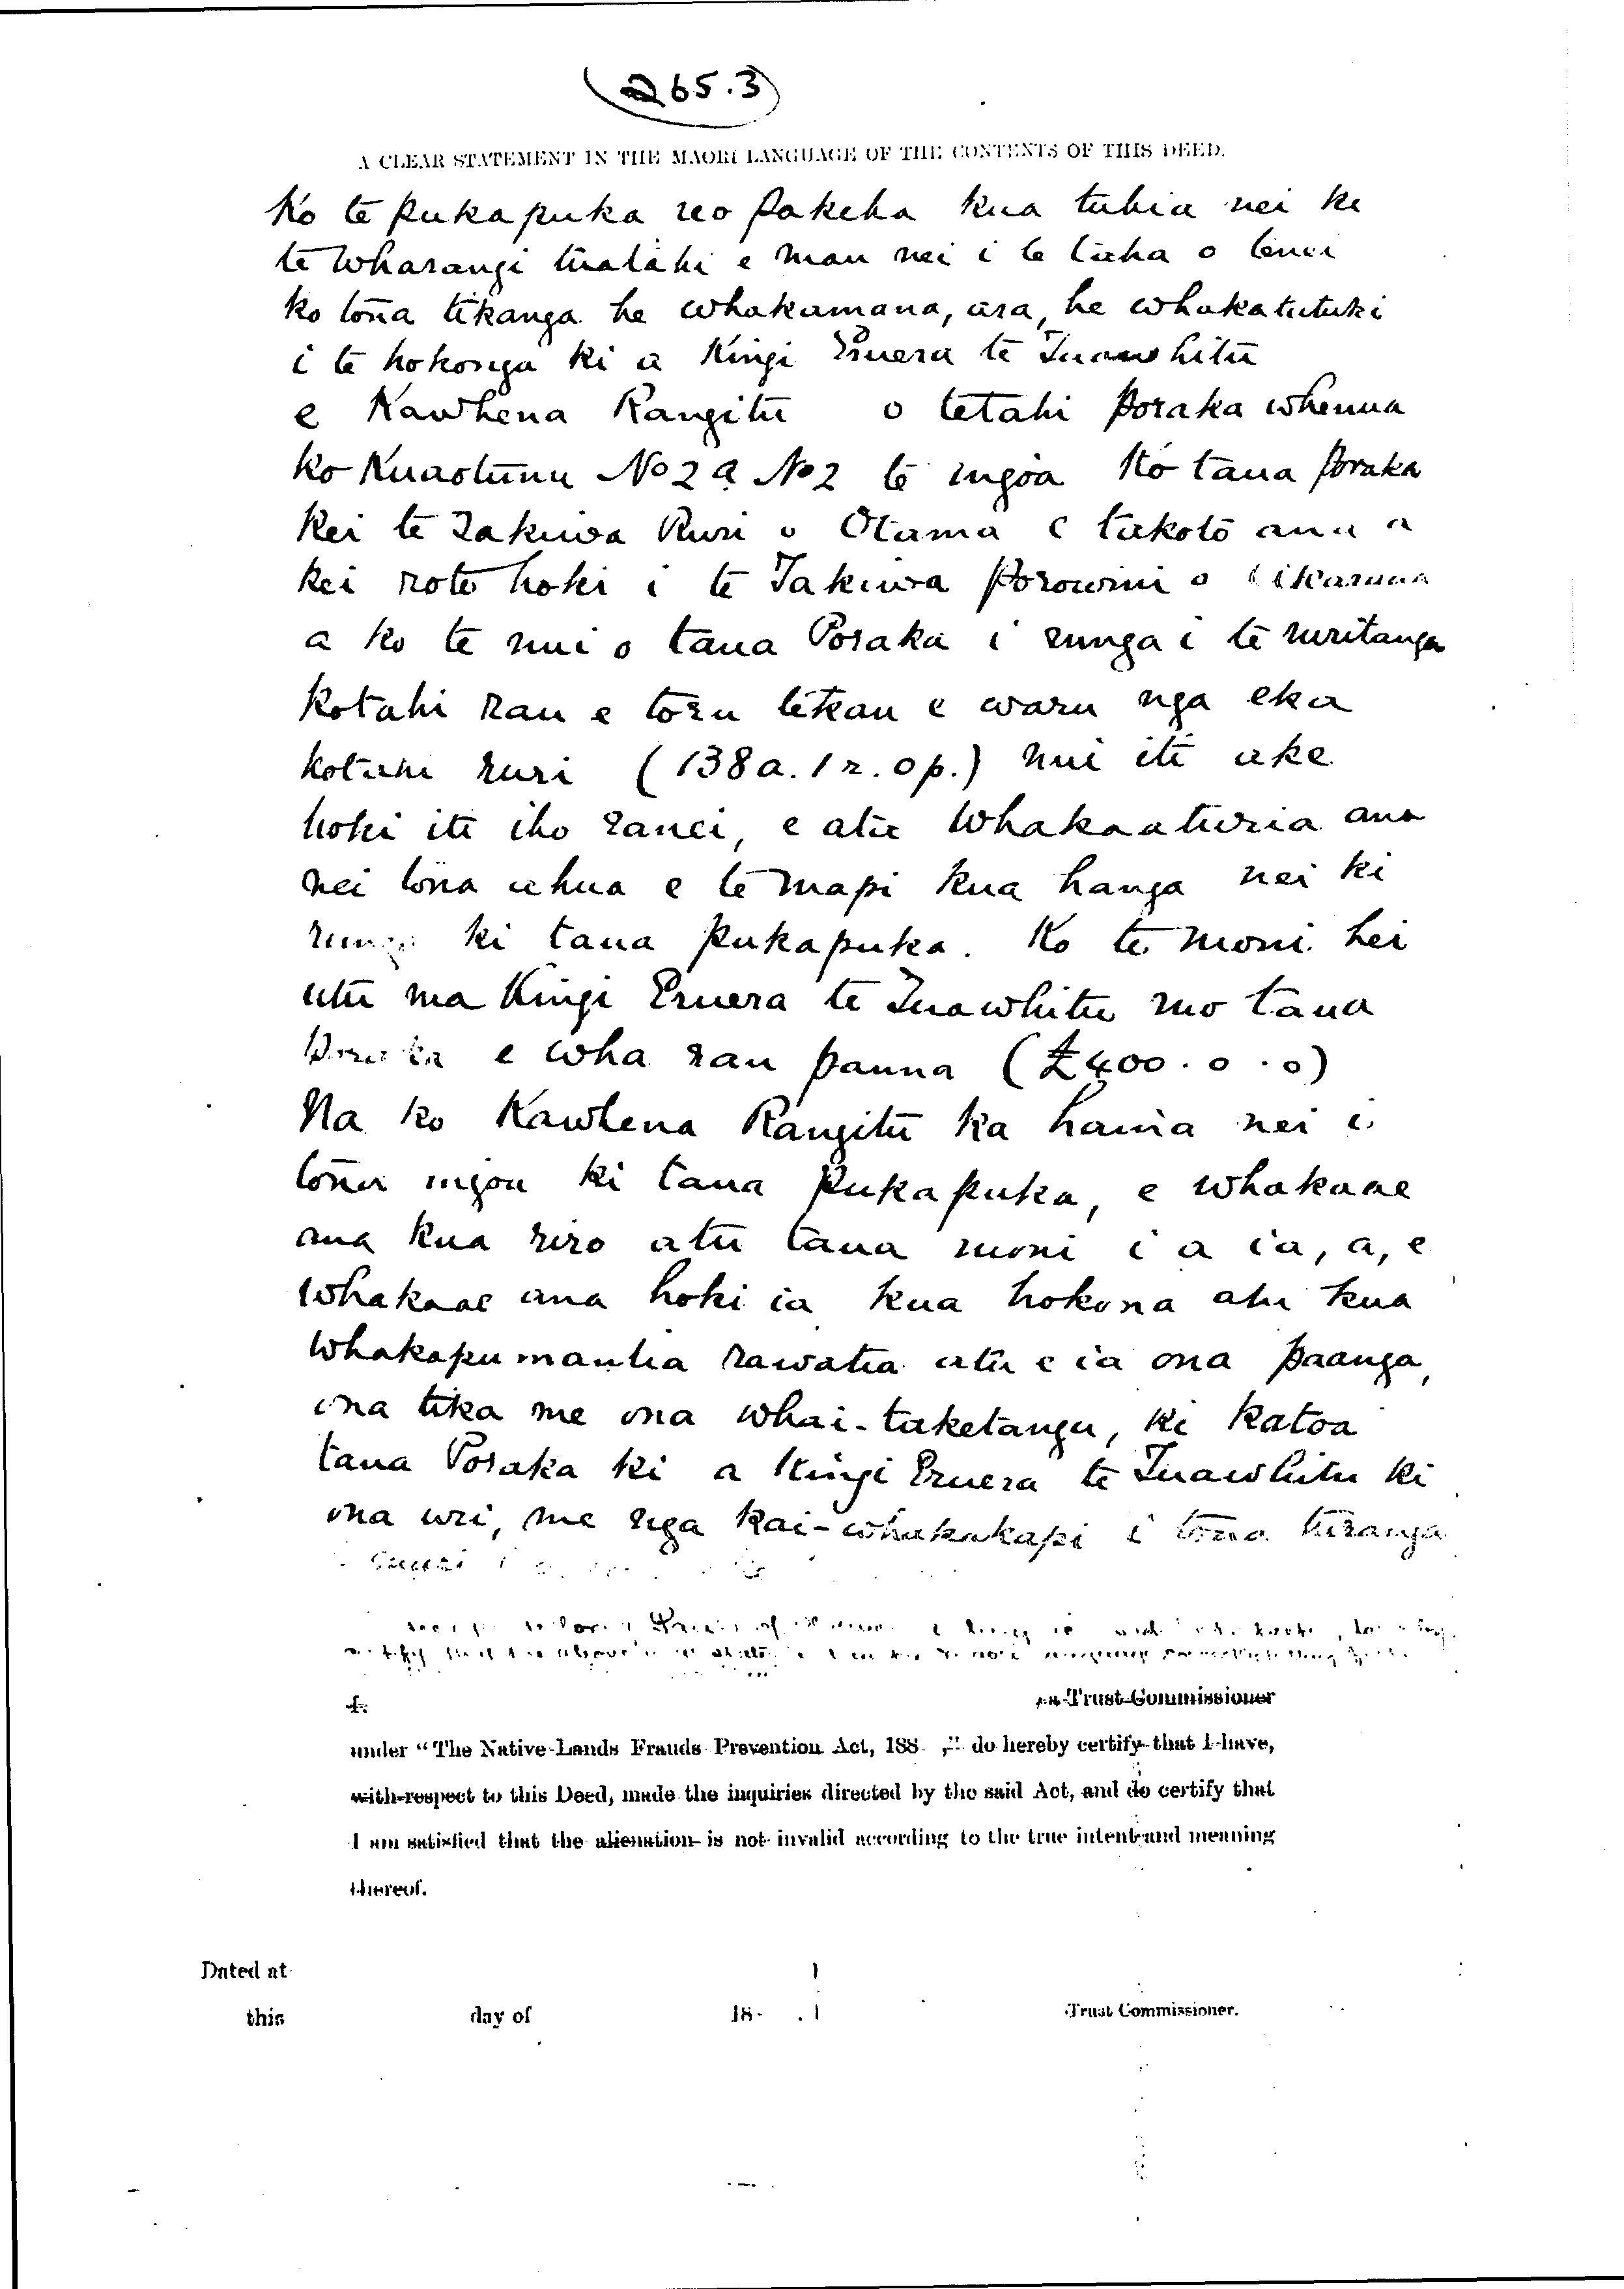 265.3
A CLEAR STATEMENT IN THE MAORI LANGUAGE OF THE CONTENTS OF THIS DEED.
Ko te pukapuka reo pakeha kua tuhia nei ki
te wharangi tuatahi e mau nei i te taha o tenei
ko tona tikanga he whakamana, ara, he whakatutuki
i te hokonga ki a Kingi Eruera te Tuawhitu
e Kawhena Rangitu o tetahi poraka whenua
ko Kuaotunu No 2 a No 2 te ingoa Ko taua poraka
kei te Takiwa Ruri o Otama e takoto ana a
kei roto hoki i te Takiwa Porowini o Akarana
a ko te nui o taua Poraka i runga i te ruritanga
kotahi rau e toru tekau e waru nga eka
kotahi ruri (138a. 1r. 0p.) nui iti ake
hoki iti iho ranei, e ata whakaaturia ana
nei tona ahua e te mapi kua hanga nei ki
runga ki taua pukapuka. Ko te moni hei
utu ma Kingi Eruera te Tuawhitu mo taua
Poraka e wha rau pauna (£400.0.0)
Na ko Kawhena Rangitu ka haina nei i
tona ingoa ki taua pukapuka, e whakaae
ana kua riro atu taua moni i a ia, a, e
whakaae ana hoki ia kua hokona atu kua
whakapumautia rawatia atu e ia ona paanga,
ona tika me ona whai-taketanga, ki katoa
taua Poraka ki a Kingi Eruera te Tuawhitu ki
ona uri, me nga kai-whakakapi i tona turanga
I, a Trust Commissioner
under "The Native Lands Frauds Prevention Act, 188 ," do hereby certify that I have,
with respect to this Deed, made the inquiries directed by the said Act, and do certify that
I am satisfied that the alienation is not invalid according to the true intent and meaning
thereof.
Dated at
this day of 18 . Trust Commissioner.